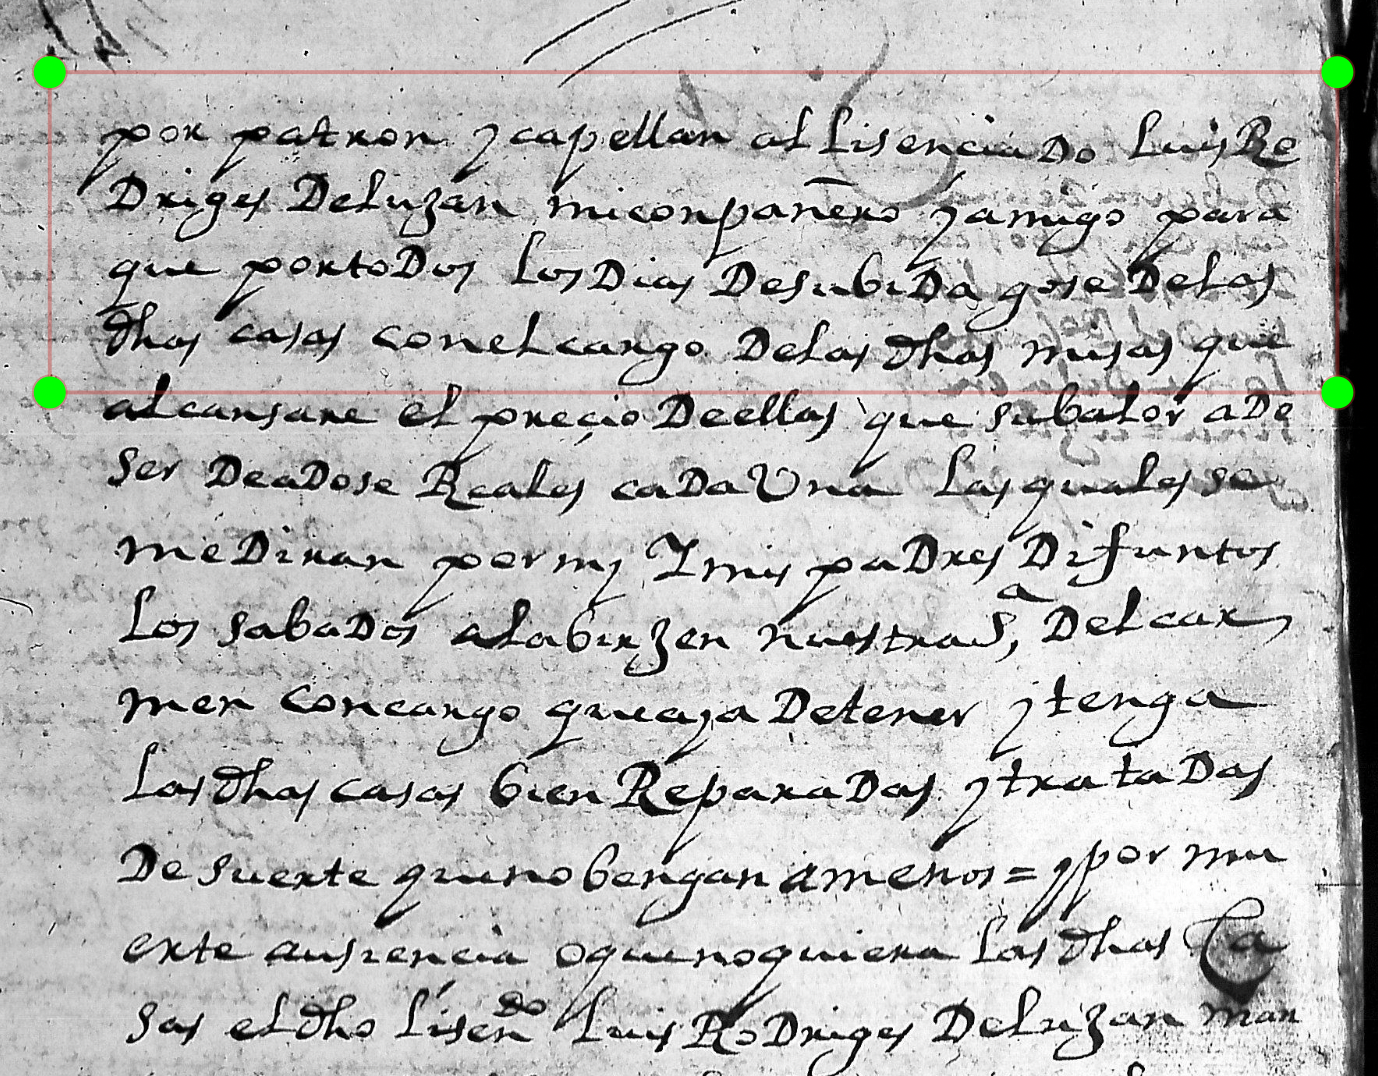 por patron y capellan al Lisenciado Luis Ro
Driges De Luzan mi conpañero y amigo para
que por todos los Dias De su biDa gose De las
dhas casas con el cargo De las dhas misas que
alcansare el preçio De ellas que su balor a De
ser De a Dose Reales caDa Una las quales se
me Diran por my Y mis paDres Difuntos
los sabaDos a la birzen nuestra Sª, Del car
men con cargo que aya De tener y tenga
las dhas casas bien ReparaDas y trataDas
De suerte que no bengan a menos = y por mu
erte ausiencia o que no quiera las dhas Ca
sas el dho Lisendo Luis RoDriges De Luzan man